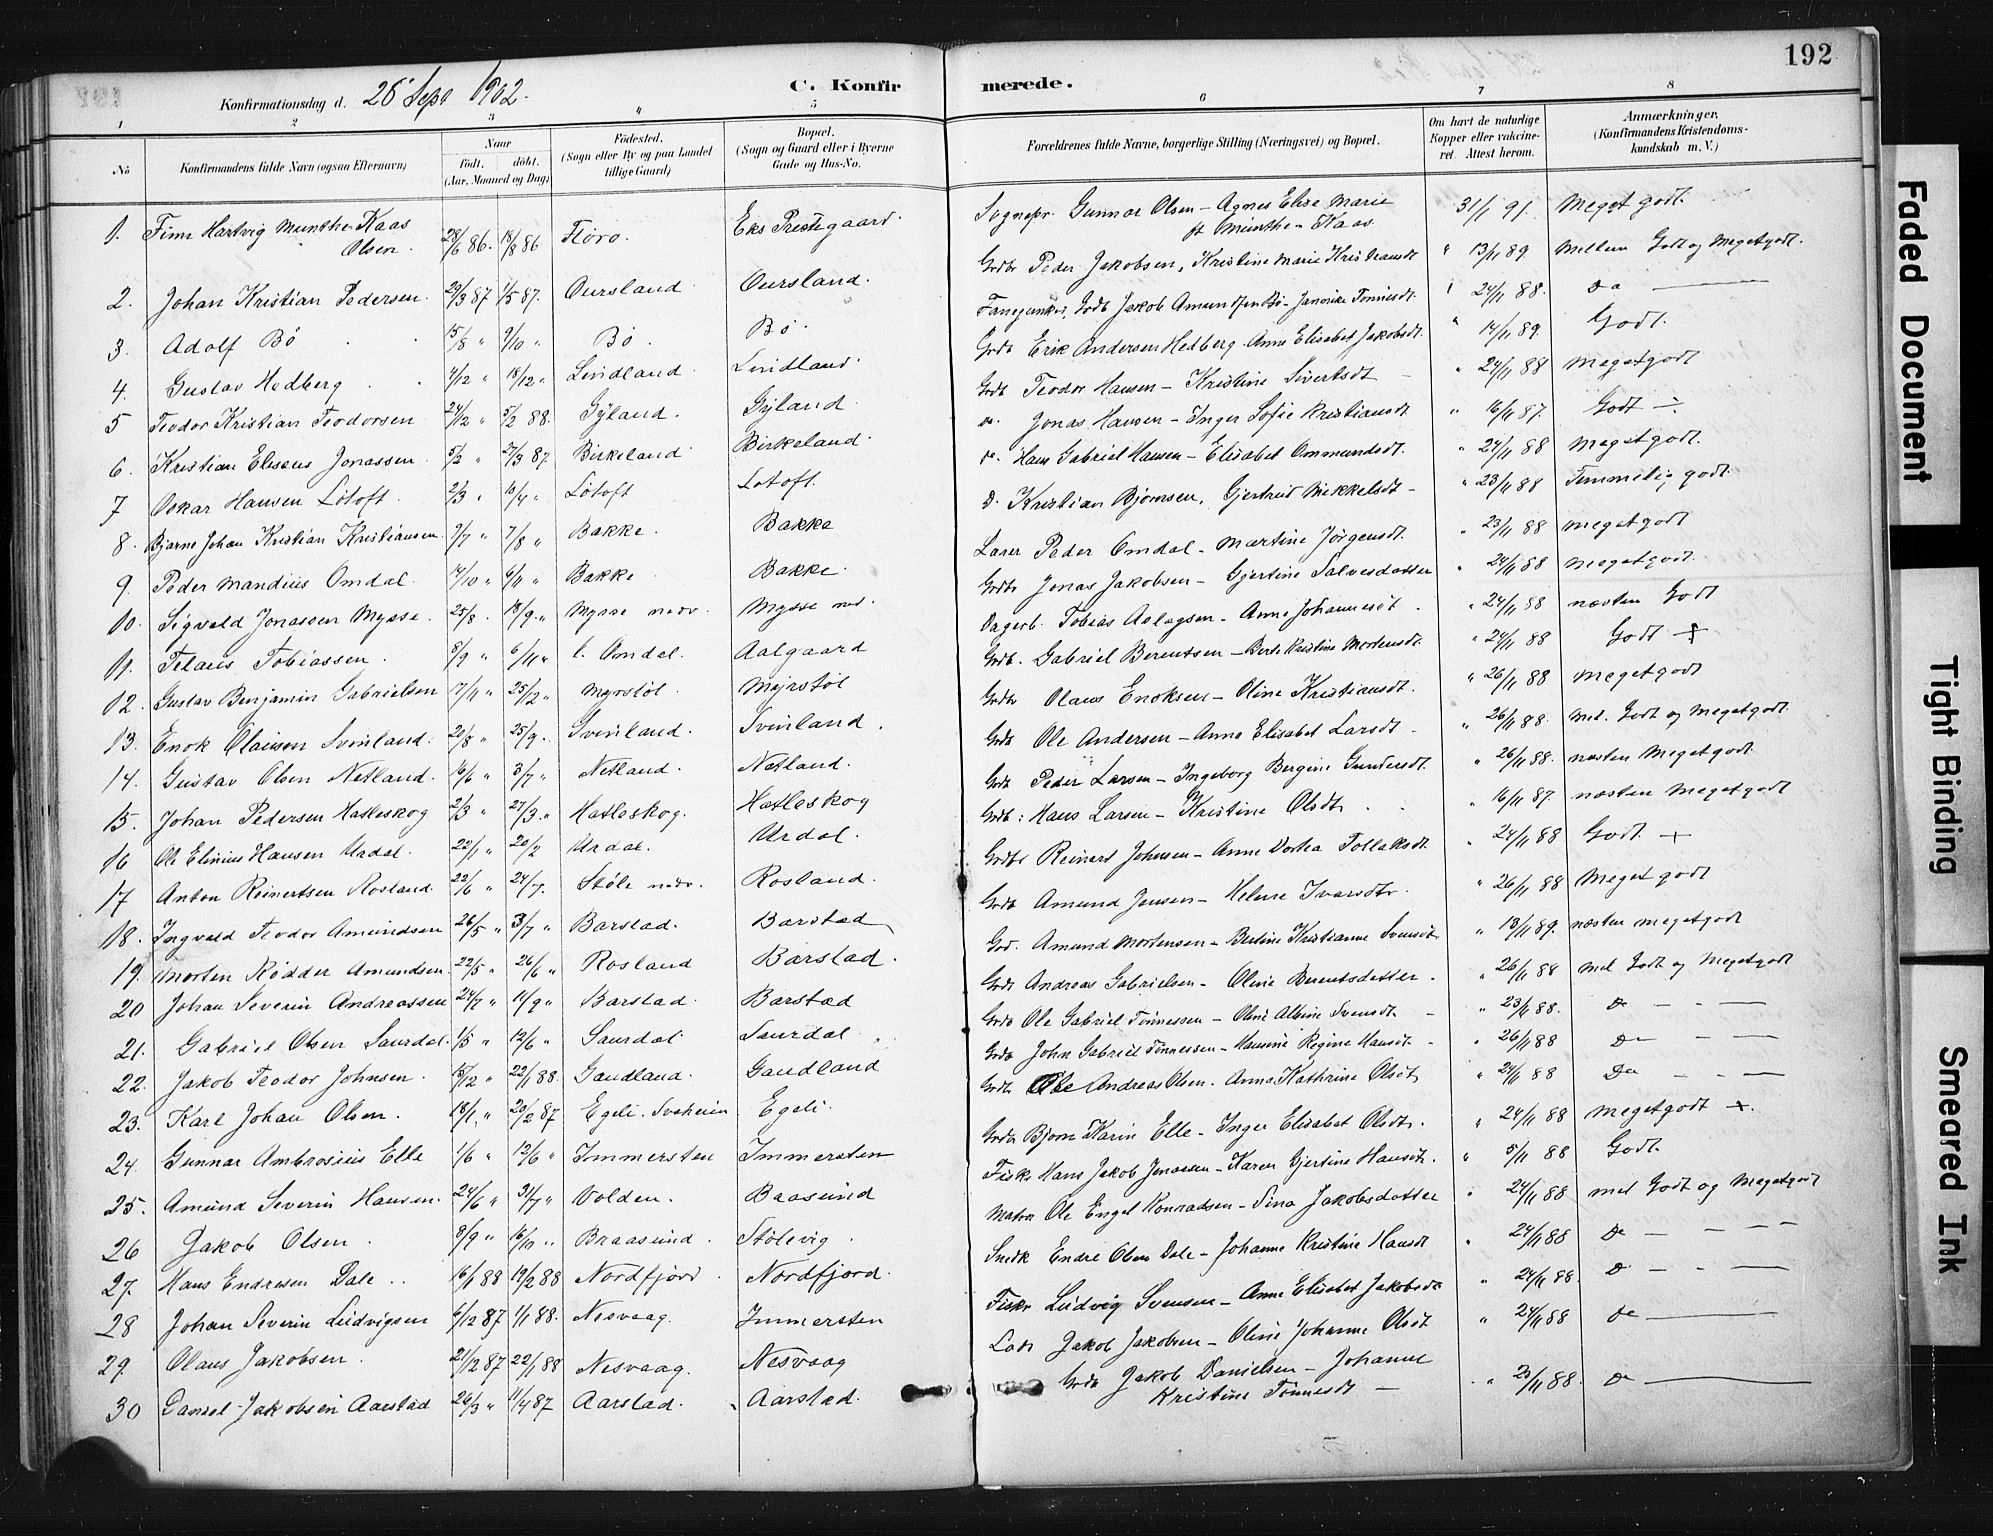 192
Konfirmationsdag d. 26 Sept 1902. C. Konfirmerede.
1 2 3 4 5 6 7 8
No
Konfirmandens fulde Navn (ogsaa Efternavn)
Naar født. døbt. (Aar, Maaned og Dag)
Fødested. (Sogn eller By og paa Landet tillige Gaard)
Bopæl. (Sogn og Gaard eller i Byerne Gade og Hus-No.
Forældrenes fulde Navne, borgerlige Stilling (Næringsvei) og Bopæl.
Om havt de naturlige Kopper eller vaccineret. Attest herom.
Anmærkninger. (Konfirmandens Kristendomskundskab m. V.)
1. Finn Hartvig Munthe-Kaas Olsen. 28/6 86. 18/8 86 Florø. Eks Prestegaard. Sognepr. Gunnar Olsen - Agnes Elise Marie ft Munthe-Kaas 31/1 91. Meget godt.
2. Johan Kristian Pedersen. 29/3 87 1/5 87. Oursland Oursland. Grdbr Peder Jakobsen, Kristine Marie Kristiansdt " 13/11 89 Mellem Godt og Megetgodt.
3. Adolf Bø 15/8 " 9/10 " Bø. Bø. Fanejunker, Grdb Jakob Amundsen Bø - Jannike Tønnesdt. " 24/11 88. Do
4. Gustav Hedberg 4/12 " 18/12 " Lindland Lindland Grdb Erik Andersen Hedberg. Anne Elisabet Jakobsdt " 14/11 89. Godt.
5 Teodor Kristian Teodorsen 24/12 " 5/2 88. Gyland. Gyland Grdb Teodor Hansen - Kristine Sivertsdt " 24/11 88 Megetgodt
6. Kristian Eliseus Jonassen 5/2 " 27/3 87 Birkeland Birkeland. do. Jonas Hansen - Inger Sofie Kristiansdt " 16/11 87 Godt ÷
7 Oskar Hansen Løtoft. 2/3 " 10/4 " Løtoft Løtoft. do. Hans Gabriel Hansen - Elisabet Ommundsdt. " 24/11 88 Megetgodt.
8. Bjarne Johan Kristian Kristiansen 9/7 " 7/8 " Bakke. Bakke D. Kristian Bjørnsen, Gjertrud Mikkelsdt - " 23/11 88 Temmelig godt
9. Peder Mandius Omdal. 14/10 " 6/11 " Bakke Bakke. Lærer Peder Omdal - Martine Jørgensdt. " 23/11 88 Megetgodt
10. Sigvald Jonassen Mysse. 25/8. 18/9. " Mysse nedr. Mysse ned. Grdbr Jonas Jakobsen - Gjertine Salvesdatter " 24/11 88 Megetgodt.
11. Telaus Tobiassen. 8/9 " 6/11 " l. Omdal. Aalgaard Dagarb. Tobias Aslagsen - Anne Johannesdt. " 24/11 88 næsten Godt
12. Gustav Benjamin Gabrielsen 17/11 " 25/12 " Myrstøl. Myrstøl Grdb. Gabriel Berentsen - Berte Kristine Mortensdt. " 24/11 88 Godt +
13. Enok Olausen Svinland. 20/8 " 25/9. Svinland. Svinland. Grdbr Olaus Enoksen - Oline Kristiansdt. " 26/11 88 Megetgodt
14. Gustav Olsen Netland. 16/6 " 3/7 " Netland. Netland. Grdb Ole Andersen - Anne Elisabet Larsdt " 26/11 88. Mel. Godt og Megetgodt.
15. Johan Pedersen Hatleskog 2/3 " 27/3. " Hatleskog. Hatleskog Grdb Peder Larsen - Ingeborg Bergine Gundersdt. " 26/11 88. næsten Megetgodt.
16 Ole Elinius Hansen Urdal. 22/1 " 20/2 Urdal. Urdal. Grdb: Hans Larsen - Kristine Olsdt " 16/11 87. næsten Megetgodt
17 Anton Reinertsen Rosland. 22/6 " 24/7. Støle nedr. Rosland. Grdbr Reinert Johnsen - Anne Dortea Tollaksdt. " 24/11 88 Godt. +
18. Ingvald Teodor Amundsen 26/5 " 3/7 " Barstad. Barstad Grdb Amund Jensen - Helene Ivarsdtr. " 26/11 88 Meget godt
19. Morten Rødder Amundsen. 22/5 " 26/6 " Rosland Barstad. Grd. Amund Mortensen - Bertine Kristianne Svensdt. " 13/11 89. næsten megetgodt
20 Johan Severin Andreassen 24/7 " 11/9 " Barstad. Barstad Grdb Andreas Gabrielsen - Oline Berentsdatter. " 26/11 88 Mel Godt og Megetgodt
21. Gabriel Olsen Saurdal. 1/5 " 12/6 " Saurdal Saurdal. Grdb Ole Gabriel Tønnessen - Oline Alvine Svensdt. " 23/11 88. Do
22. Jakob Teodor Johnsen. 15/12 " 22/1 88. Gaudland. Gaudland Grdb John Gabriel Tønnessen - Hansine Regine Hansdt - " 26/11 88 Do
23. Karl Johan Olsen. 18/1. " 20/2 87 Egeli. Svaheim Egeli. Grdb Ole Andreas Olsen. Anna Kathrine Olsdt " 24/11 88 Do
24. Gunnar Ambrosius Elle 1/6 " 12/6 " Immersten Immersten Grdb Bjørn Karin Elle - Inger Elisabet Olsdt. " 24/11 88 Megetgodt +.
25. Amund Severin Hansen. 24/6 " 31/7 " Volden. Baasund Fisk Hans Jakob Jonassen - Karen Gjertine Hansdt. " 5/11 88 Godt.
26 Jakob Olsen. 8/9 " 16/10 " Braasund. Stølevig. Matros Ole Engel Konradsen - Sina Jakobsdatter " 24/11 88 mel Godt og Megetgodt
27. Hans Endresen Dale 16/1 88 19/2 88 Nordfjord. Nordfjord. Snedk Endre Olsen Dale - Johanne Kristine Hansdt " 24/11 88 Do
28 Johan Severin Ludvigsen 6/12 87 1/1 88. Nesvaag. Immersten Fiskr Ludvig Svensen - Anne Elisabet Jakobsdt " 24/11 88. D
29. Olaus Jakobsen. 21/12 87 22/1 88 Nesvaag. Nesvaag Lods Jakob Jakobsen - Oline Johanne Olsdt " 24/11 88 Do
30 Daniel Jakobsen Aarstad 26/3 " 11/4 87 Aarstad. Aarstad. Grdb Jakob Danielsen - Johanne Kristine Tønnesdt - " 23/11 88. Do
Faded Document
Tight Binding
Smeared Ink